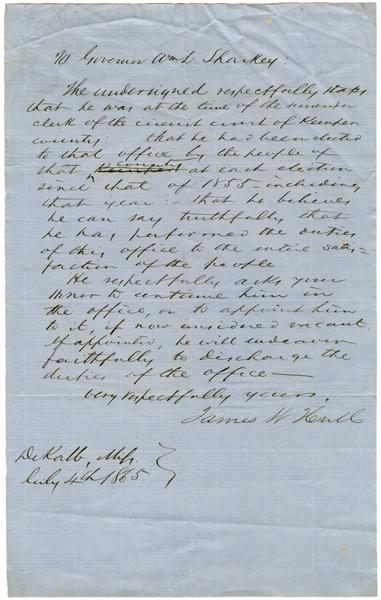 To Governor Wm L. Sharkey:
The undersigned respectfully states
that he was at the time of the surrender
clerk of the circuit court of Kemper
county: that he had been elected
to that office by the people of
that county at each election
since that of 1855 – including
that year: – that he believes
he can say truthfully that
he has performed the duties
of the office to the entire satis=
faction of the people
He respectfully asks your
Honor to continue him in
the office, or to appoint him
to it, if now considered vacant.
If appointed, he will endeavor
faithfully to discharge the
duties of the office —
very respectfully yours,
James W Hull
DeKalb, Miss,
July 4th 1865.